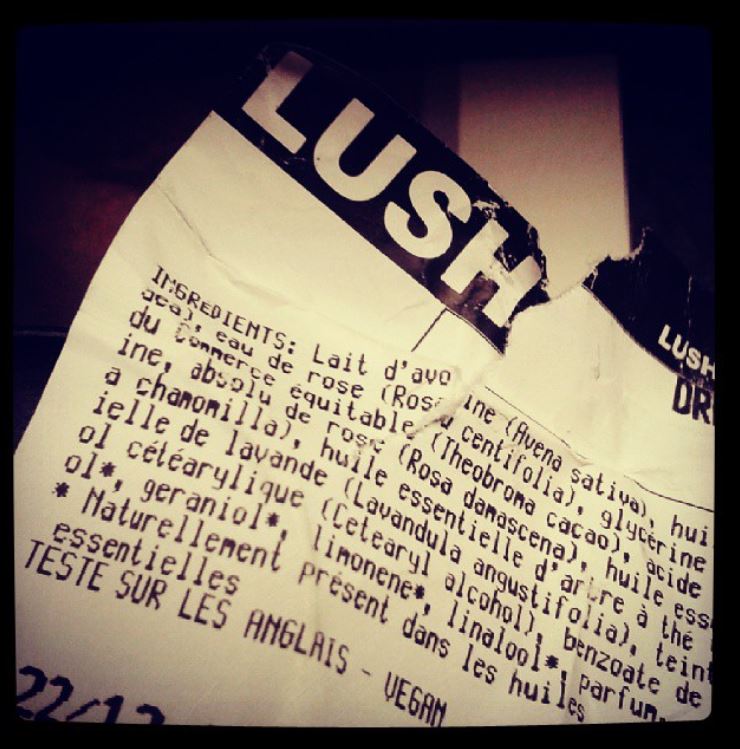 LUSH
LUSH
DR
INGREDIENTS: Lait d'avoine (Avena sativa), hui
eau de rose (Rosa centifolia), glycérine
du Commerce équitable (Theobroma cacao), acide
ine, absolu de rose (Rosa damascena), huile ess
a chamomilla), huile essentielle d'arbre à thé
ielle de lavande (Lavandula angustifolia), teint
ol cétéarylique (Cetearyl alcohol), benzoate de
ol*, geraniol*, limonene*, linalool*, parfum.
* Naturellement présent dans les huiles
essentielles
TESTE SUR LES ANGLAIS - VEGAN